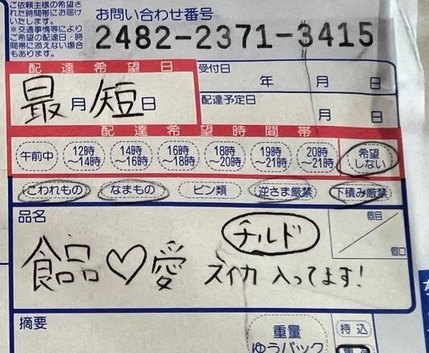 ご依頼主様の希望さ
れた時間帯にお届け
いたします。
※交通事情等により
ご希望の配達日・時
間帯に添えない場合
もあります。
お問い合わせ番号
2482-2371-3415
配達希望日
最月短日
受付日
年 月 日
配達予定日
月 日
配達希望時間帯
午前中 12時～14時 14時～16時 16時～18時 18時～20時 19時～21時 20時～21時 希望しない
こわれもの なまもの ビン類 逆さま厳禁 下積み厳禁
品名
チルド
個目
個口
食品♡愛 スイカ 入ってます!
摘要
重量
ゆうパック
持込